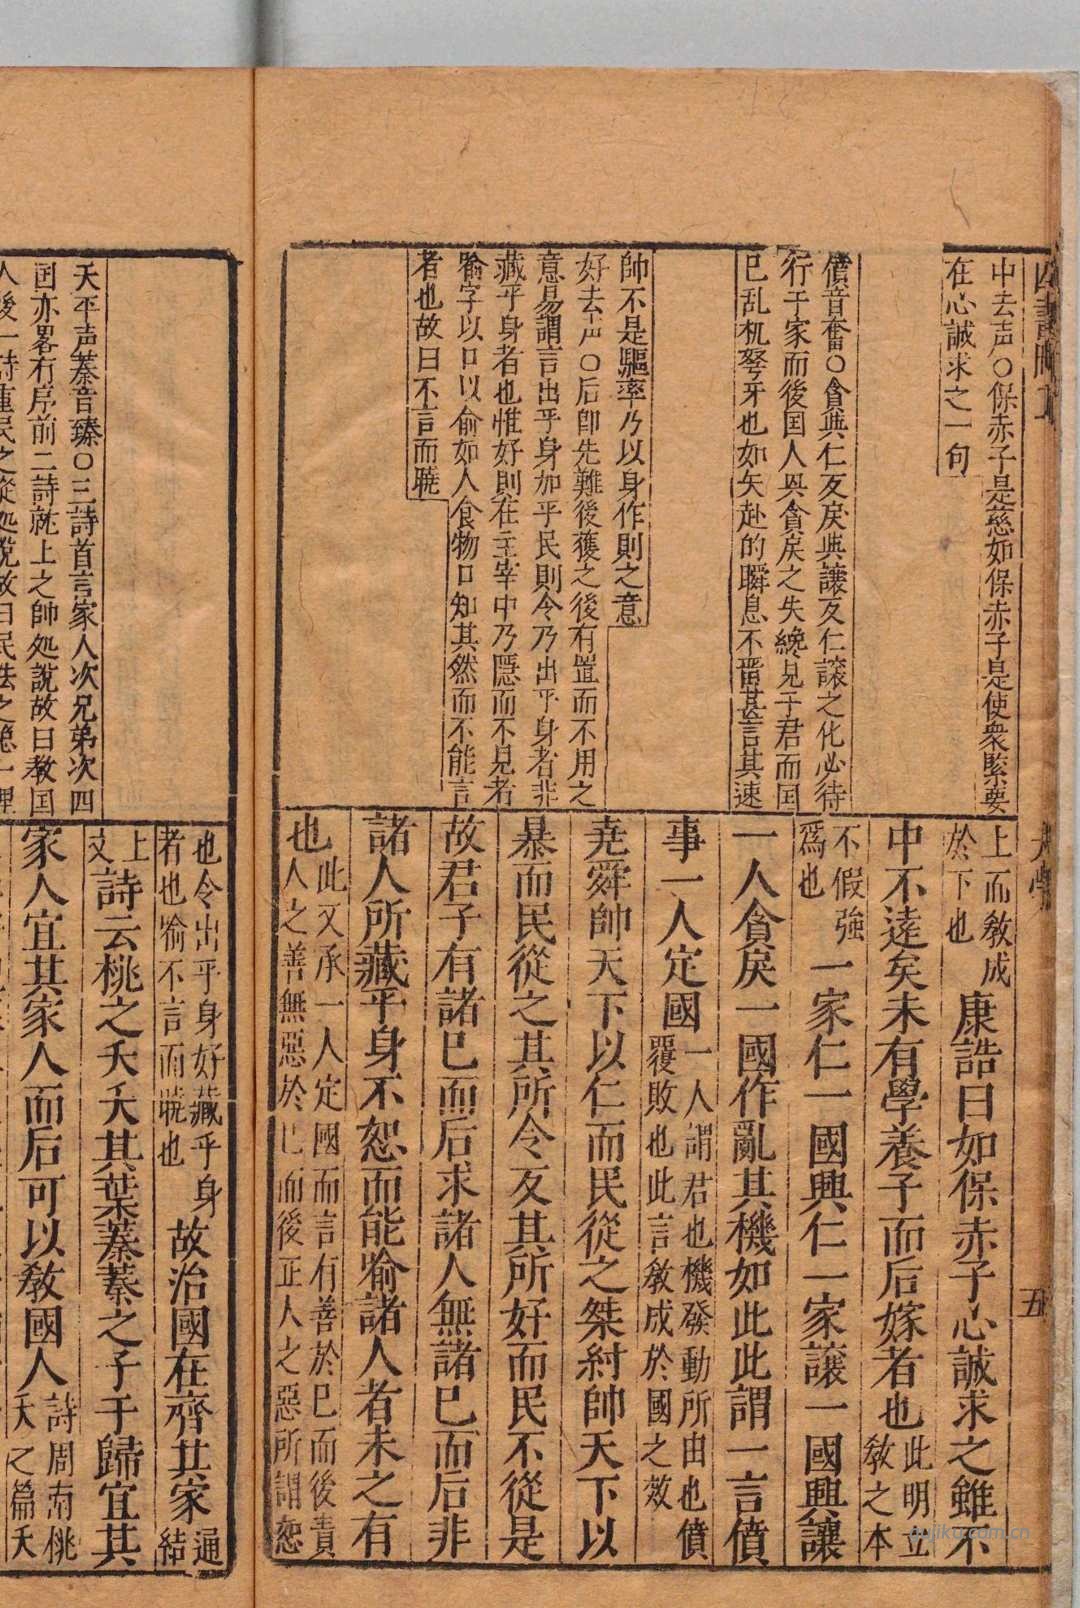 中去声○保赤子是慈如保赤子是使衆緊要
在心誠求之一句
僨音奮○貪與仁反戾與讓反仁讓之化必待
行于家而後囯人興貪戾之失纔見于君而囯
已乱机弩牙也如矢赴的瞬息不畱甚言其速
帥不是驅率乃以身作則之意
好去声○后卽先難後獲之後有置而不用之
意易謂言出乎身加乎民則令乃出乎身者非
藏乎身者也惟好則在主宰中乃隱而不見者
喻字以口以俞如人食物口知其然而不能言
者也故曰不言而曉
上而敎成
於下也
康誥曰如保赤子心誠求之雖不
中不遠矣未有學養子而后嫁者也
此明立
敎之本
不假強
爲也
一家仁一國興仁一家讓一國興讓
一人貪戾一國作亂其機如此此謂一言僨
事一人定國
一人謂君也機發動所由也僨
覆敗也此言敎成於國之效
堯舜帥天下以仁而民從之桀紂帥天下以
暴而民從之其所令反其所好而民不從是
故君子有諸己而后求諸人無諸己而后非
諸人所藏乎身不恕而能喻諸人者未之有
也
此又承一人定國而言有善於己而後責
人之善無惡於己而後正人之惡所謂恕
大學
五
夭平声蓁音臻○三詩首言家人次兄弟次四
囯亦畧有序前二詩就上之帥処說故曰教囯
也令出乎身好藏乎身
者也喻不言而曉也
故治國在齊其家
通
結
上
文
詩云桃之夭夭其葉蓁蓁之子于歸宜其
家人宜其家人而后可以敎國人
詩周南桃
夭之篇夭
gujiku.com.cn